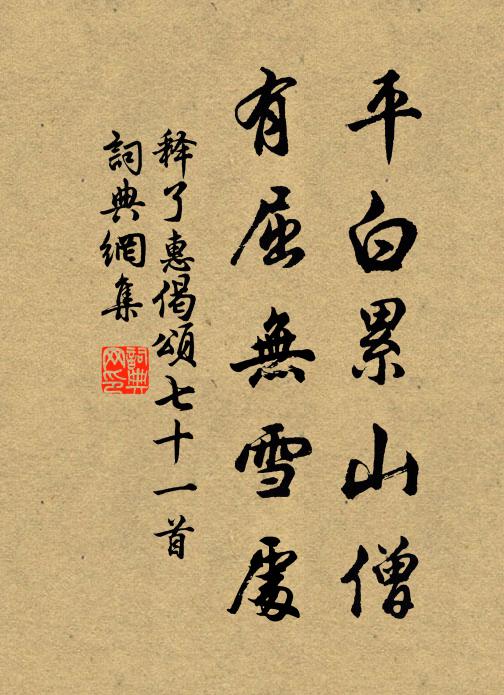 平白累山僧
有屈無雪處
释了惠偈頌七十一首
詞典網集
詞典網印